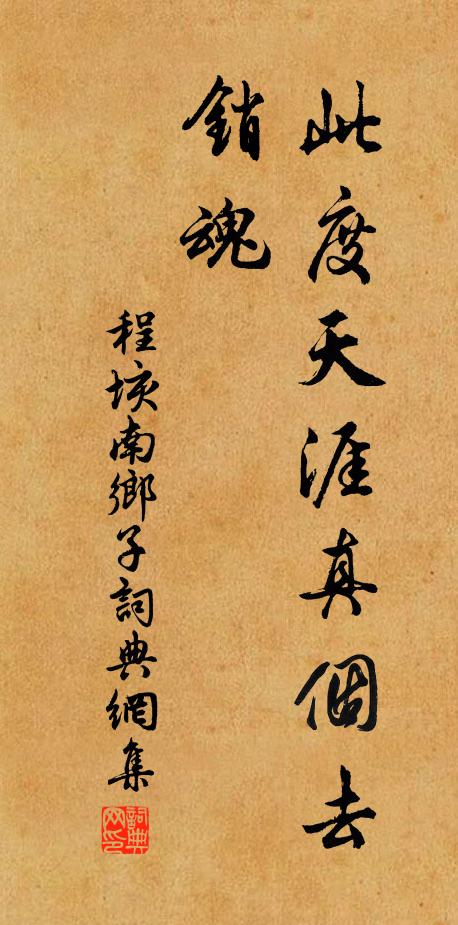 此度天涯真個去
銷魂
程垓南鄉子詞典網集
詞典网印